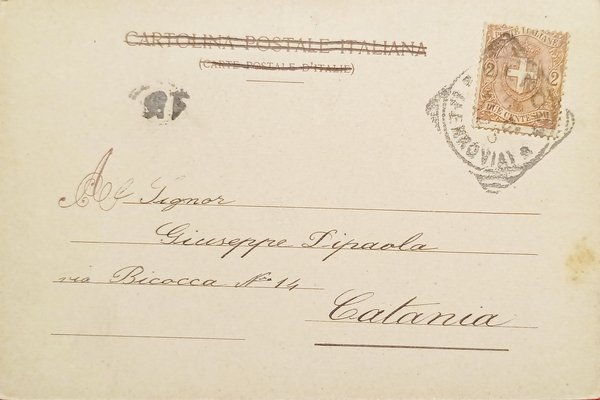 CARTOLINA POSTALE ITALIANA
(CARTE POSTALE D'ITALIE)
POSTE ITALIANE
2 2
DUE CENTESIMI
FERROVIA
Al Signor
Giuseppe Dipaola
via Bicocca No 14
Catania